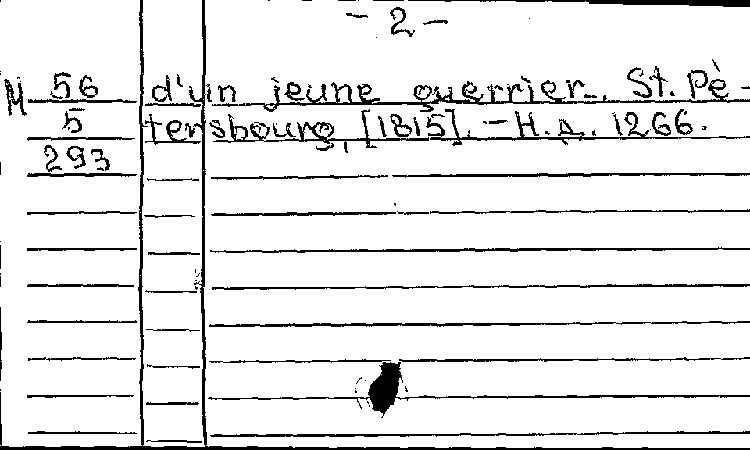 - 2 -
M 56 d'un jeune guerrier. St. Pè-
5 tersbourg, [1815]. - Н.д. 1266.
293